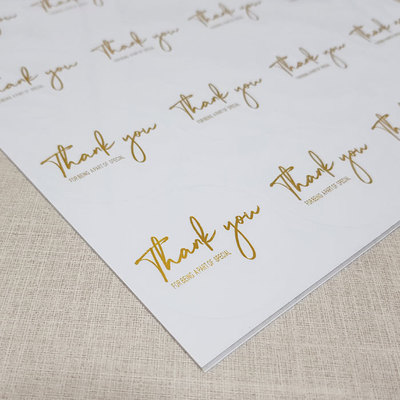 Thank you
Thank you
Thank you
Thank you
FOR BEING A PART OF SPECIAL
Thank you
FOR BEING A PART OF SPECIAL
Thank you
FOR BEING A PART OF SPECIAL
Thank you
FOR BEING A PART OF SPECIAL